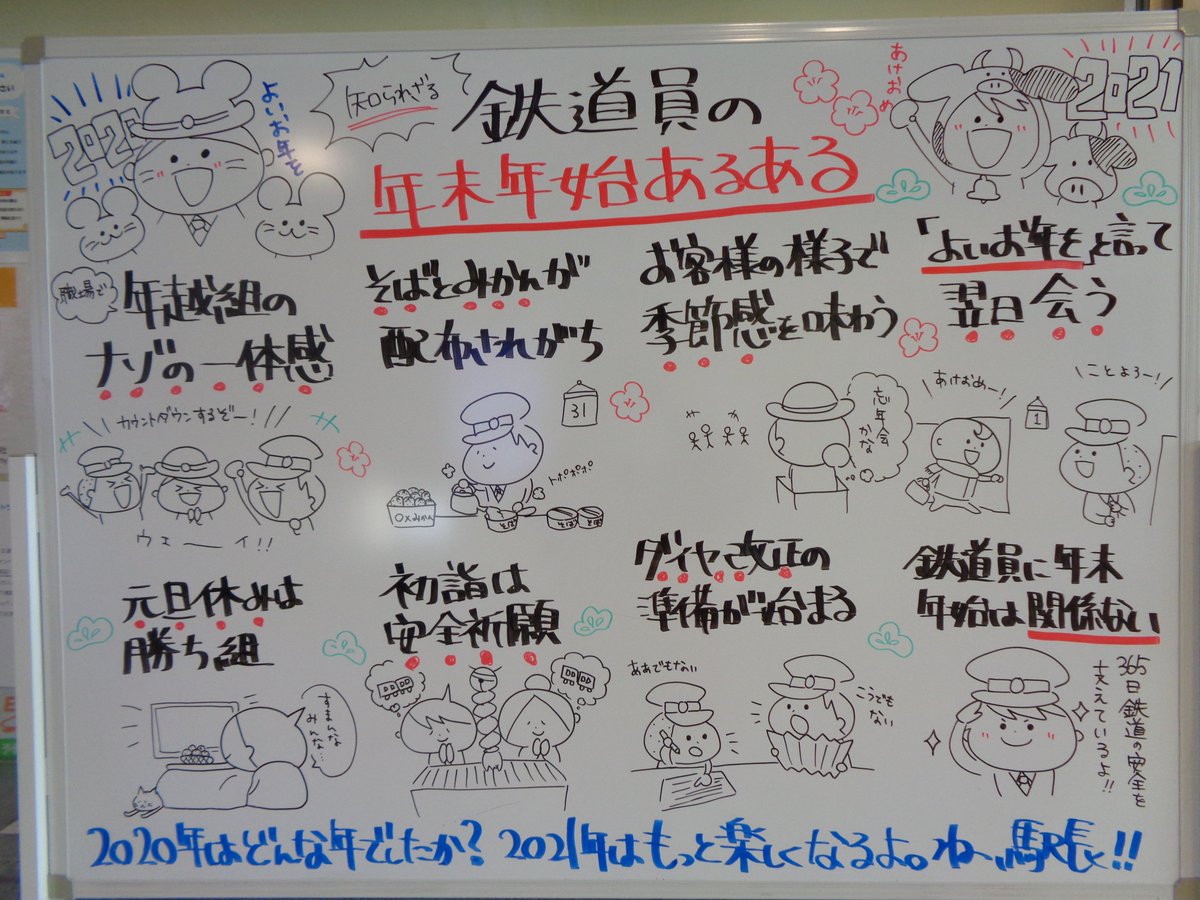 2020
よいお年を
知られざる
鉄道員の
年末年始あるある
あけおめ
2021
職場で
年越組の
ナゾの一体感
カウントダウンするぞー!
ウェーイ!!
そばとみかんが
配布されがち
31
トポポポポ
○×みかん
そば
そば
そば
お客様の様子で
季節感を味わう
忘年会
かな
「よいお年を」と言って
翌日会う
あけおめー!
1
ことよろー!
元旦休みは
勝ち組
すまんな
みんな…
初詣は
安全祈願
ダイヤ改正の
準備が始まる
ああでもない
こうでも
ない
鉄道員に年末
年始は関係ない
365日鉄道の安全を
支えているよ!!
2020年はどんな年でしたか? 2021年はもっと楽しくなるよ。ね、駅長!!